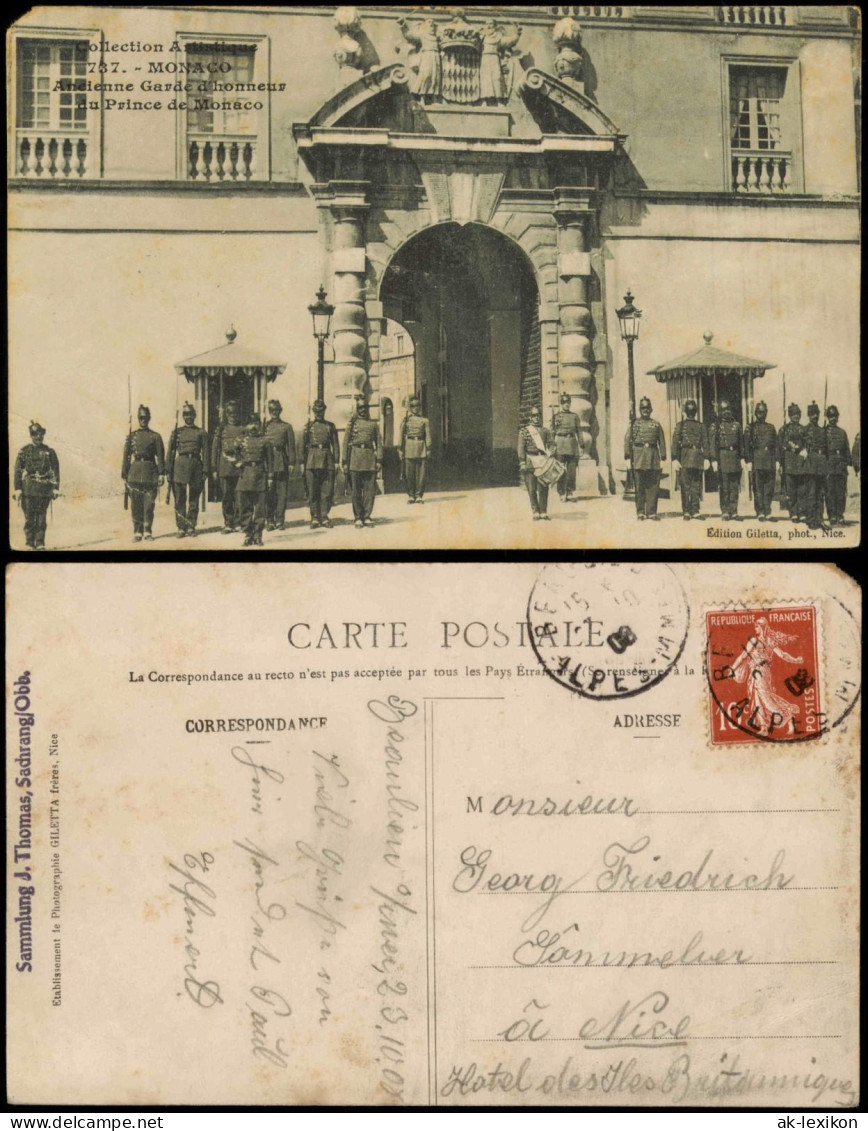 Collection Artistique
737. - MONACO
Ancienne Garde d'honneur
du Prince de Monaco
Edition Giletta, phot., Nice.
CARTE POSTALE
La Correspondance au recto n'est pas acceptée par tous les Pays Étrangers (Se renseigner à la
CORRESPONDANCE
ADRESSE
RÉPUBLIQUE FRANÇAISE
10
POSTES
ALPES
Sammlung J. Thomas, Sachrang/Obb.
Etablissement de Photographie GILETTA frères, Nice
Beaulieu s/mer, 23.10.08
Viele Grüße von
Paul
Monsieur
Georg Friedrich
Sommelier
à Nice
Hotel des Iles Britannique
ak-lexikon